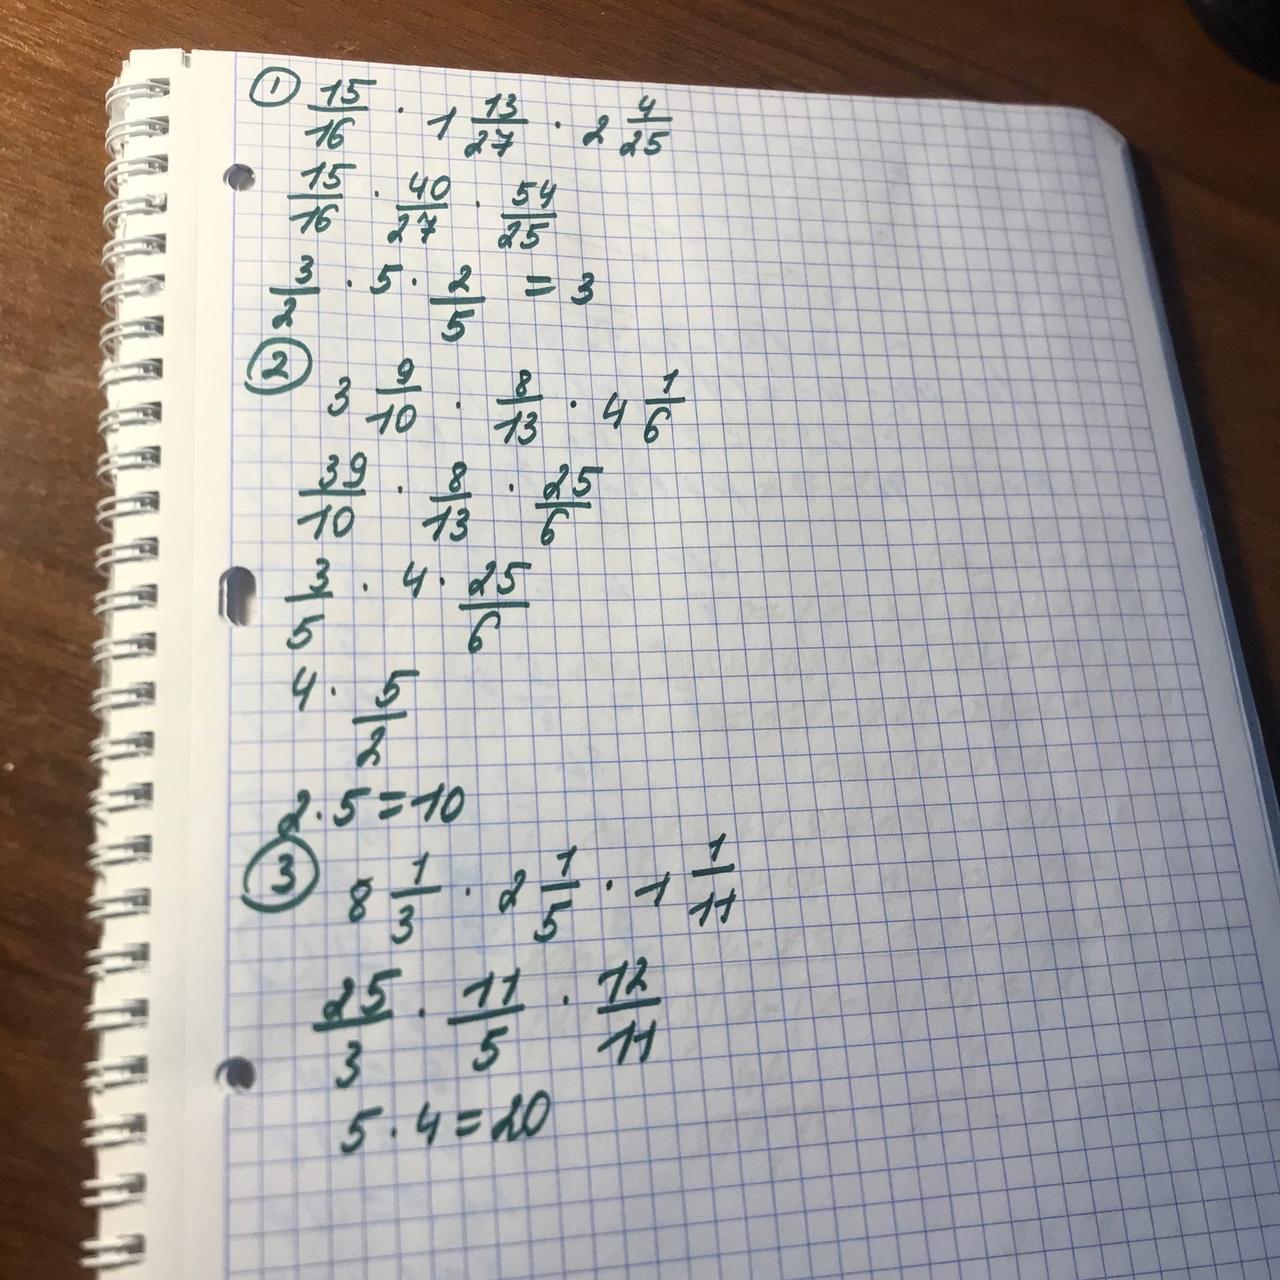 ① 15/16 · 1 13/27 · 2 4/25
15/16 · 40/27 · 54/25
3/2 · 5 · 2/5 = 3
② 3 9/10 · 8/13 · 4 1/6
39/10 · 8/13 · 25/6
3/5 · 4 · 25/6
4 · 5/2
2 · 5 = 10
③ 8 1/3 · 2 1/5 · 1 1/11
25/3 · 11/5 · 12/11
5 · 4 = 20